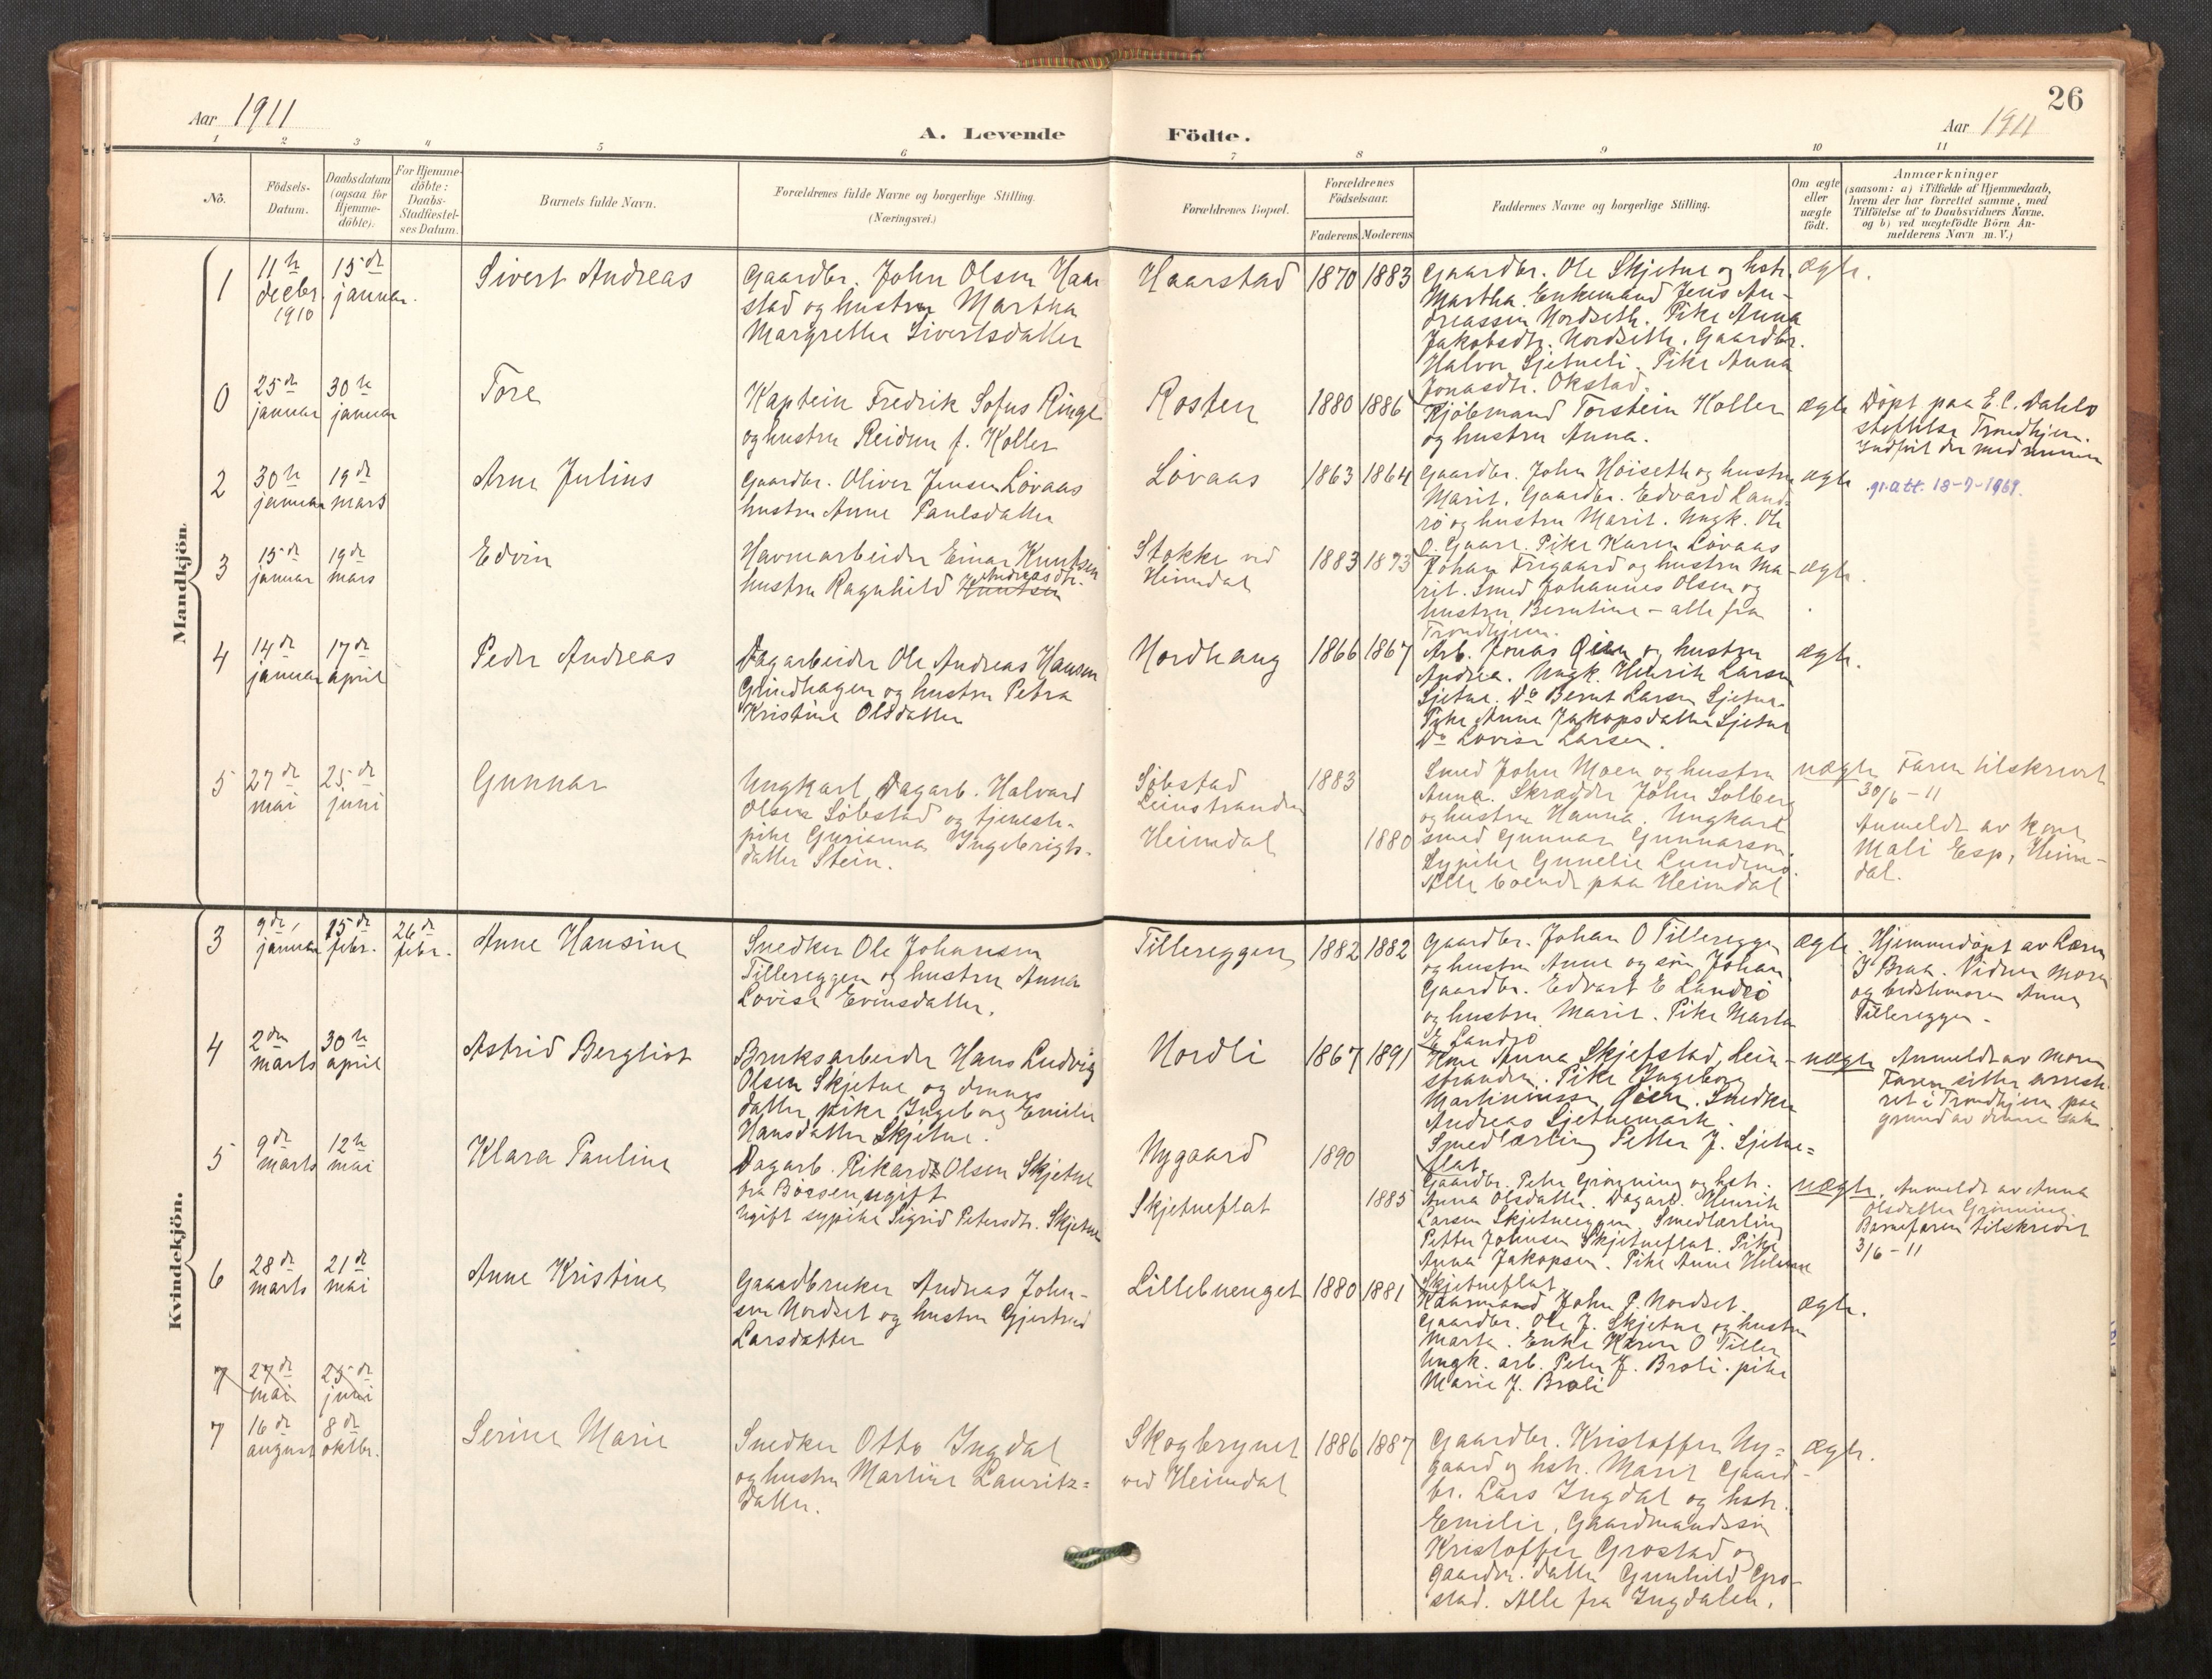 26
Aar 1911
A. Levende Födte.
Aar 1911
1 2 3 4 5 6 7 8 9 10 11
No.
Födsels-
Datum.
Daabsdatum
(ogsaa for
Hjemme-
döbte).
For Hjemme-
döbte:
Daabs-
Stadfæstel-
ses Datum.
Barnets fulde Navn.
Forældrenes fulde Navne og borgerlige Stilling.
(Næringsvei.)
Forældrenes Bopæl.
Forældrenes
Födselsaar.
Faderens. Moderens.
Faddernes Navne og borgerlige Stilling.
Om ægte
eller
uægte
födt.
Anmærkninger
(saasom: a) i Tilfælde af Hjemmedaab,
hvem der har forrettet samme, med
Tilföielse af to Daabsvidners Navne,
og b) ved uægtefödte Börn An-
melderens Navn m. V.)
Mandkjön.
1
11te
decbr.
1910
15de
januar.
Sivert Andreas
Gaardbr. John Olsen Haar
stad og hustru Martha
Margrethe Sivertsdatter
Haarstad
1870 1883
Gaardbr. Ole Skjetne og hstr.
Martha. Enkemand Jens An-
dreassen Nordseth. Pike Anna
Jakobsdtr. Nordseth. Gaardbr.
Halvor Sjetneli. Pike Anna
Jonasdtr. Okstad.
ægte.
0
25de
januar
30te
januar
Tore
Kaptein Fredrik Sofus Ringe
og hustru Reidun f. Koller
Rosten
1880 1886
Kjöbmand Torstein Koller
og hustru Anna.
ægte
Döpt paa E. C. Dahls
stiftelse Trondhjem.
Indfört der med nummer
2
30te
januar
19de
mars
Arne Julius
Gaardbr. Oliver Jensen Lövaas
hustru Anne Paulsdatter
Lövaas
1863 1864
Gaardbr. John Höiseth og hustru
Marit. Gaardbr. Edvard Land-
rö og hustru Marit. Ungk. Ole
O. Gaare. Pike Karen Lövaas
ægte
gr.att. 18-7-1969.
3
15de
januar
19de
mars
Edvin
Havnearbeider Einar Knutsen
Andreasdtr.
hustru Ragnhild Knutsen
Stokke ved
Heimdal
1883 1873
Johan Frigaard og hustru Ma-
rit. Smed Johannes Olsen og
hustru Berntine - alle fra
Trondhjem.
ægte.
4
14de
januar
17de
april
Peder Andreas
Dagarbeider Ole Andreas Hansen
Grindhagen og hustru Petra
Kristine Olsdatter
Nordhaug
1866 1867
Arb. Jonas Öien og hustru
Andrea. Ungk. Henrik Larsen
Sjetne. Do Bernt Larsen Sjetne.
Pike Anne Jakopsdatter Sjetne
Do Lovise Larsen.
ægte.
5
27de
mai
25de
juni
Gunnar
Ungkarl Dagarb. Halvard
Olsen Söbstad og tjeneste-
pike Gurianna Ingebrigts-
datter Stein.
Söbstad
Leinstranden
Heimdal
1883
1880
Smed John Moen og hustru
Anna. Skrædder John Solberg
og hustru Hanna. Ungkarl
smed Gunnar Gunnarson.
Sypike Gunelie Lundemo.
Alle boende paa Heimdal
uægte
Faren tilskrevet
30/6 - 11
Anmeldt av kone
Mali Esp, Heim-
dal.
Kvindekjön.
3
9de
januar
15de
febr.
26de
febr.
Anne Hansine
Snedker Ole Johansen
Tillereggen og hustru Anna
Lovise Evensdatter.
Tillereggen
1882 1882
Gaardbr. Johan O Tillereggen
og hustru Anne og sön Johan
Gaardbr. Edvart E Landrö
og hustru Marit. Pike Marta
E Landrö
ægte
Hjemmedöpt av Lærer
I Braa. Vidner moren
og bedstemoren Anne
Tillereggen -
4
2den
marts
30te
april
Astrid Bergliot
Bruksarbeider Hans Ludvig
Olsen Skjetne og dennes
datter pike Ingeborg Emilie
Hansdatter Skjetne.
Nordli
1867 1891
Kone Anna Skjefstad, Lein-
stranden. Pike Ingeborg
Martinussen Öien. Snedker
Andreas Sjetnemark.
Smedlærling Petter J. Sjetne=
flat.
uægte
Anmeldt av moren
Faren sitter arreste-
ret i Trondhjem paa
grund av denne sak
5
9de
marts
12te
mai
Klara Pauline
Dagarb. Rikard Olsen Skjetne
fra Börsen ugift
Ugift sypike Sigrid Petersdtr. Skjetne
Nygaard
Skjetneflat
1890
1885
Gaardbr. Peter Grönning og hstr.
Anna Olsdatter. Dagarb. Henrik
Larsen Skjetneeggen. Smedlærling
Petter Johnsen Skjetneflat. Pike
Anna Jakopsen. Pike Anne Helene
Skjetneflat
uægte.
Anmeldt av Anna
Olsdatter Grönning.
Barnefaren tilskrevet
3/6 - 11
6
28de
marts
21de
mai
Anne Kristine
Gaardbruker Andreas John-
sen Nordset og hustru Gjertrud
Larsdatter
Lillebuenget
1880 1881
Kaarmand John P. Nordset.
Gaardbr. Ole J. Skjetne og hustru
Marta. Enke Karen O Tiller
Ungk. arb. Peter J. Broli. pike
Marie J. Broli
ægte.
7
27de
mai
25de
juni
7
16de
august
8de
oktbr.
Serine Marie
Snedker Otto Ingdal
og hustru Martine Lauritz=
datter.
Skogbrynet
ved Heimdal
1886 1887
Gaardbr. Kristoffer Ny=
gaard og hstr. Marit Gaard-
br. Lars Ingdal og hstr.
Emilie, Gaardmandssön
Kristoffer Grostad og
Gaardm. datter Gunhild Gro-
stad. Alle fra Ingdalen.
ægte.